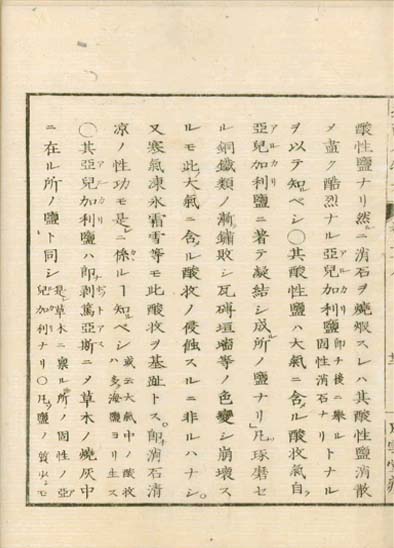 酸性鹽ナリ然ルニ消石ヲ燒煆スレハ其酸性鹽消散
メ盡ク酷烈ナル亞兒加利鹽即チ後ニ擧ル固性消石ナリトナル
アルカリ
ヲ以テ知ルベシ○其酸性鹽ハ大氣ニ含ル酸敉氣自
亞兒加利鹽ニ著テ凝結シ成ル所ノ鹽ナリ凡琢磨セ
アルカリ
ル銅鐵類ノ漸鏽敗シ瓦磚垣墻等ノ色變シ崩壞ス
ルモ此大氣ニ含ル酸敉ノ侵蝕スルニ非ルハナシ。
又寒氣凍氷霜雪等モ此酸敉ヲ基趾トス。即消石清
凉ノ性功モ是ニ係ルヿ知ルベシ或云大氣中ノ酸敉ハ多ク海鹽ヨリ生ス
○其亞兒加利鹽ハ即剥篤亞斯ニメ草木ノ燒灰中
アルカリ
ポトアス
ニ在ル所ノ鹽ト同シ是草木ニ禀ル所ノ固性ノ亞兒加利ナリ○凡鹽ノ質少シモ
アルカリ